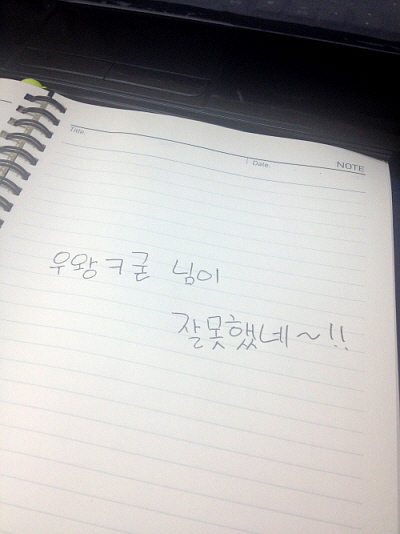 Title.
Date.
NOTE
우왕ㅋ굳 님이
잘못했네~!!